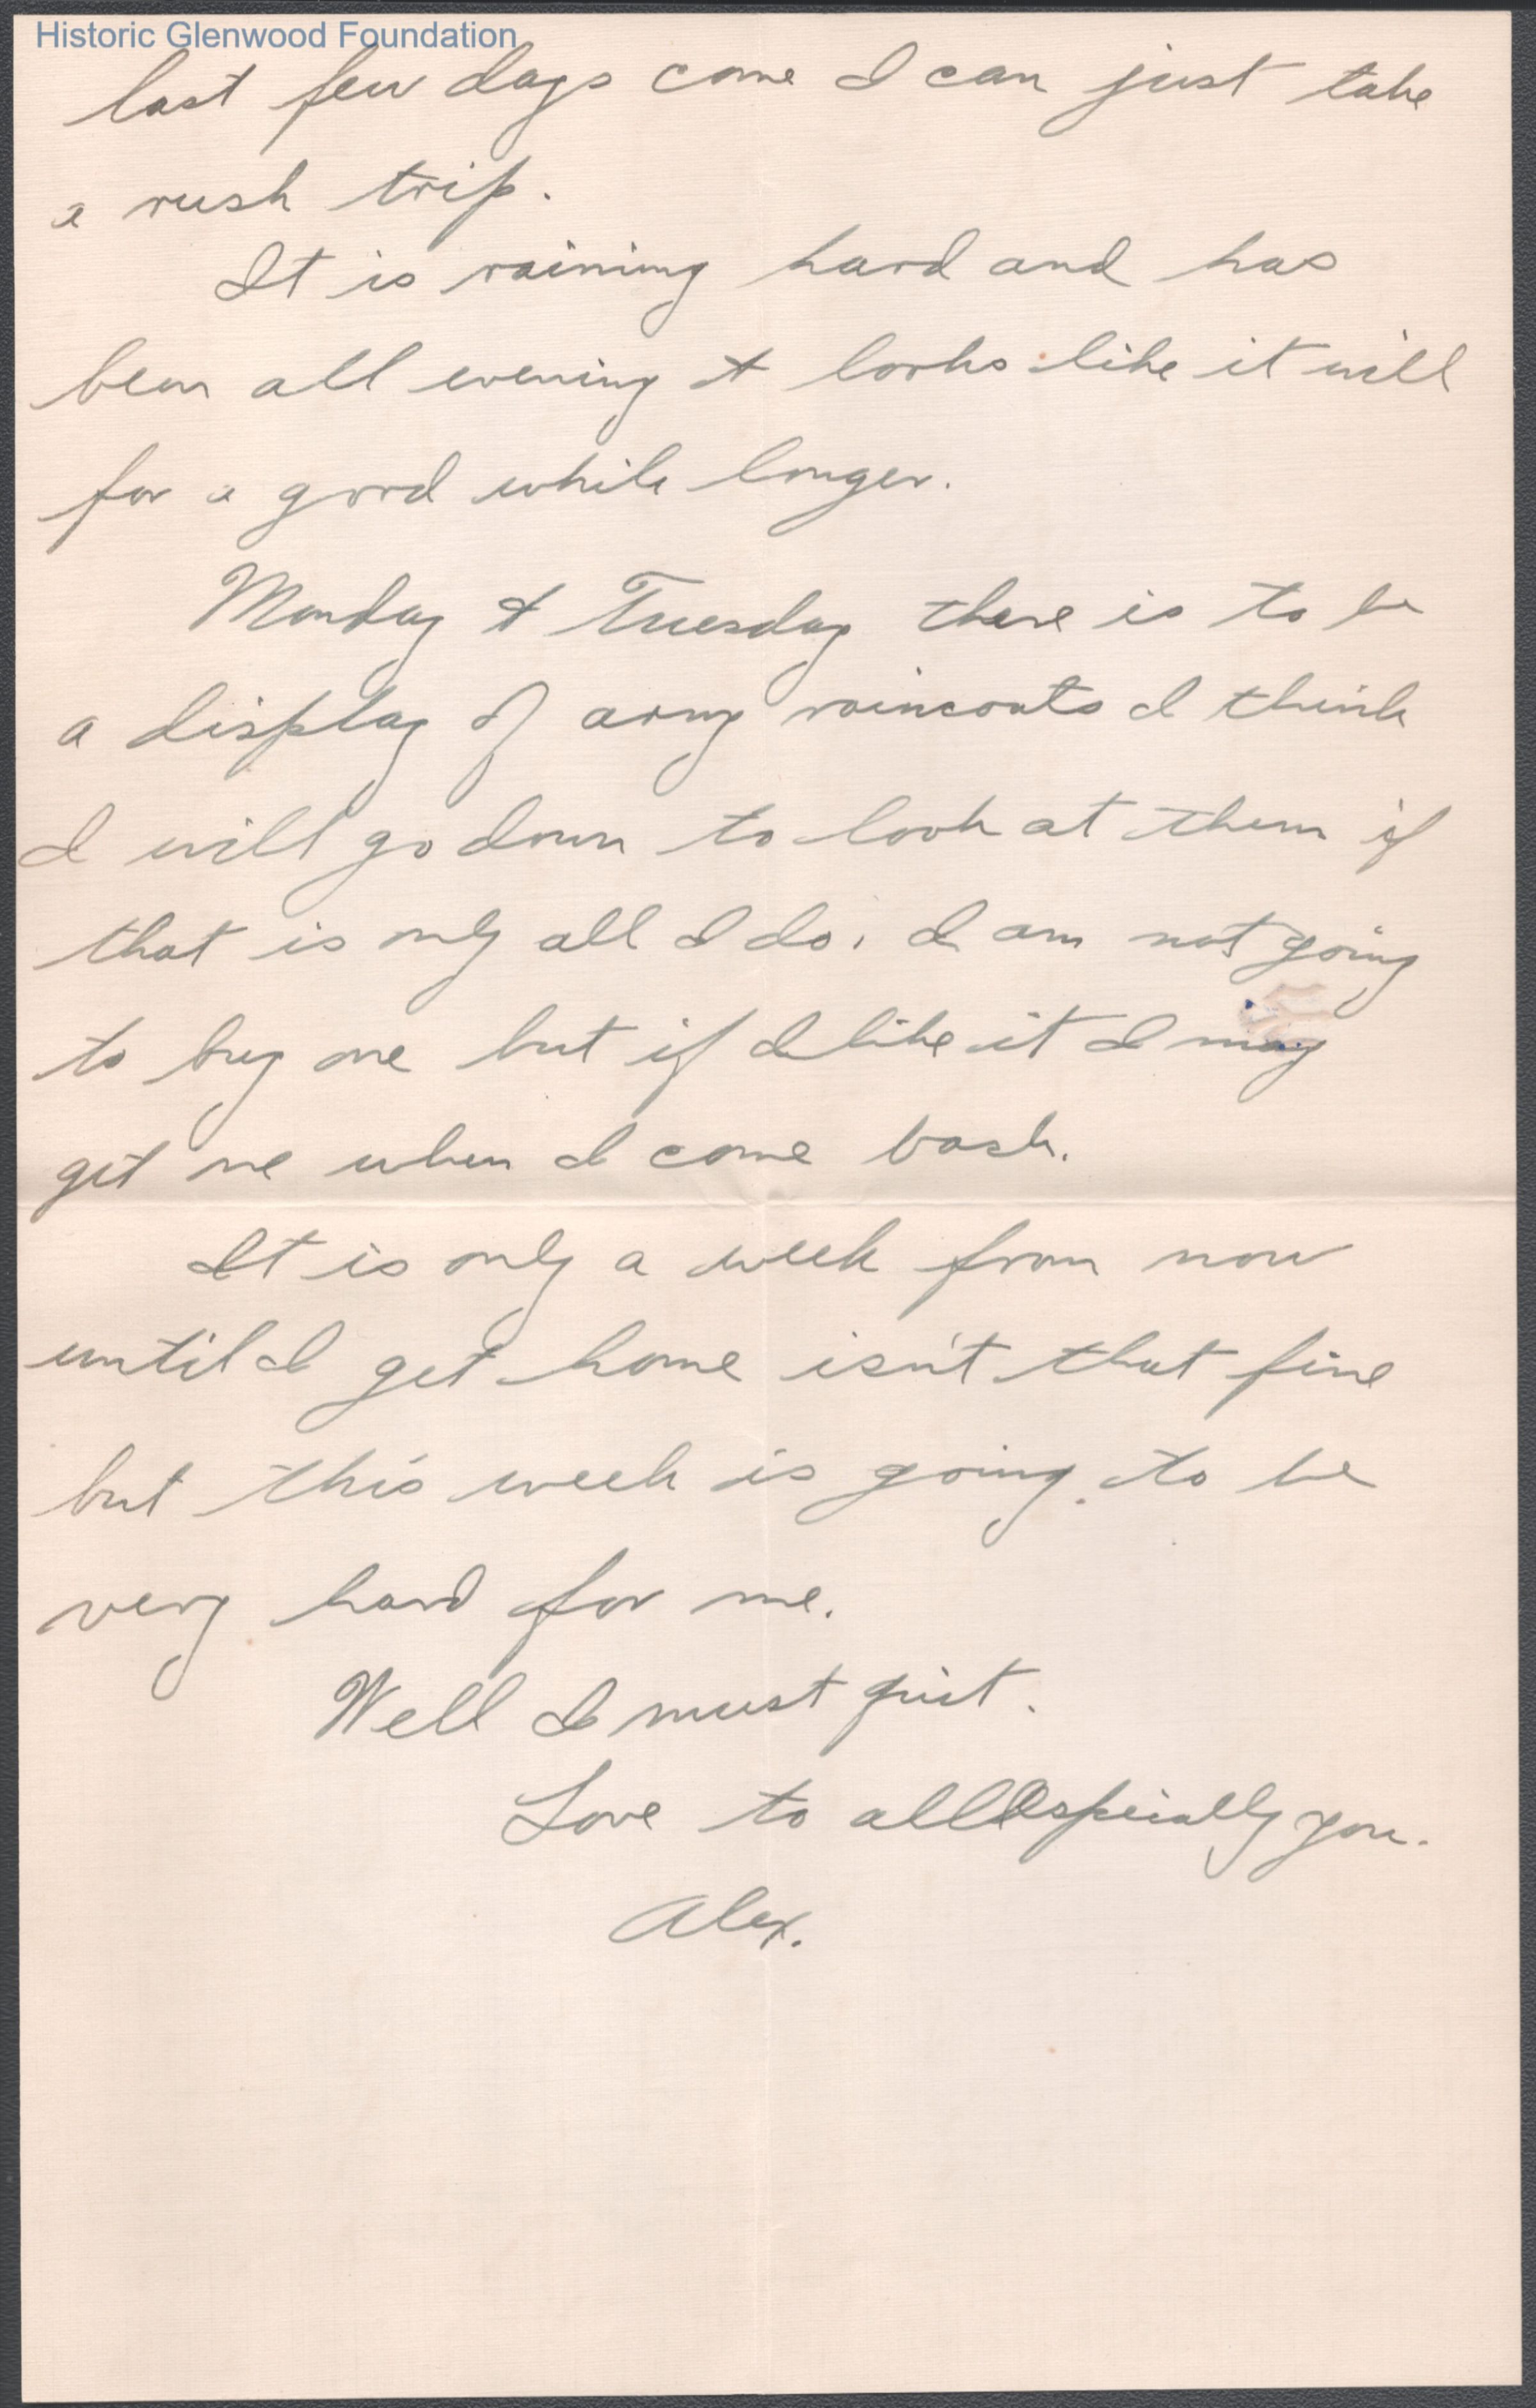 Historic Glenwood Foundation
last few days come I can just take
a rush trip.
It is raining hard and has
been all evening & looks like it will
for a good while longer.
Monday & Tuesday there is to be
a display of army raincoats I think
I will go down to look at them if
that is only all I do. I am not going
to buy one but if I like it I may
get one when I come back.
It is only a week from now
until I get home isn't that fine
but this week is going to be
very hard for me.
Well I must quit.
Love to all especially you.
Alex.